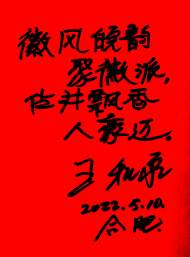 徽风皖韵
聚徽派,
佐井飘香
人豪迈.
王
2022.5.10
合肥.